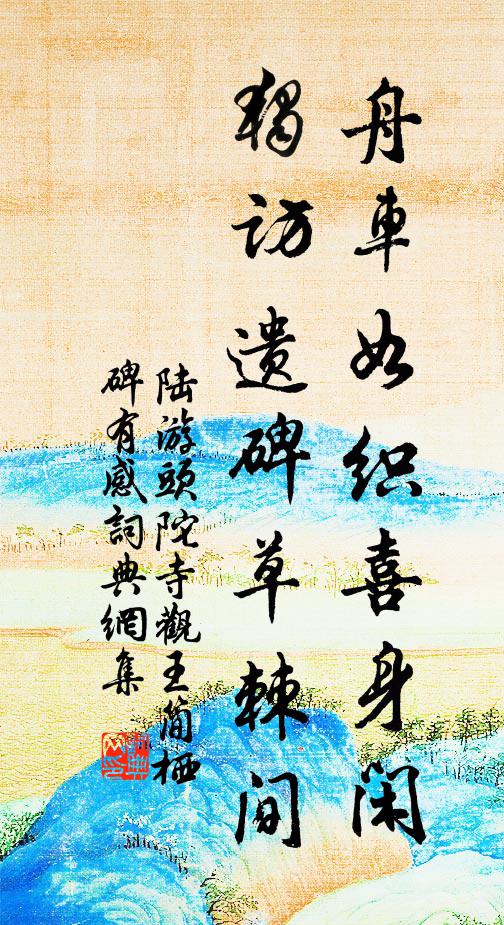 舟車如织喜身闲
獨访遗碑草棘间
陆游頭陀寺觀王简栖
碑有感詞典網集